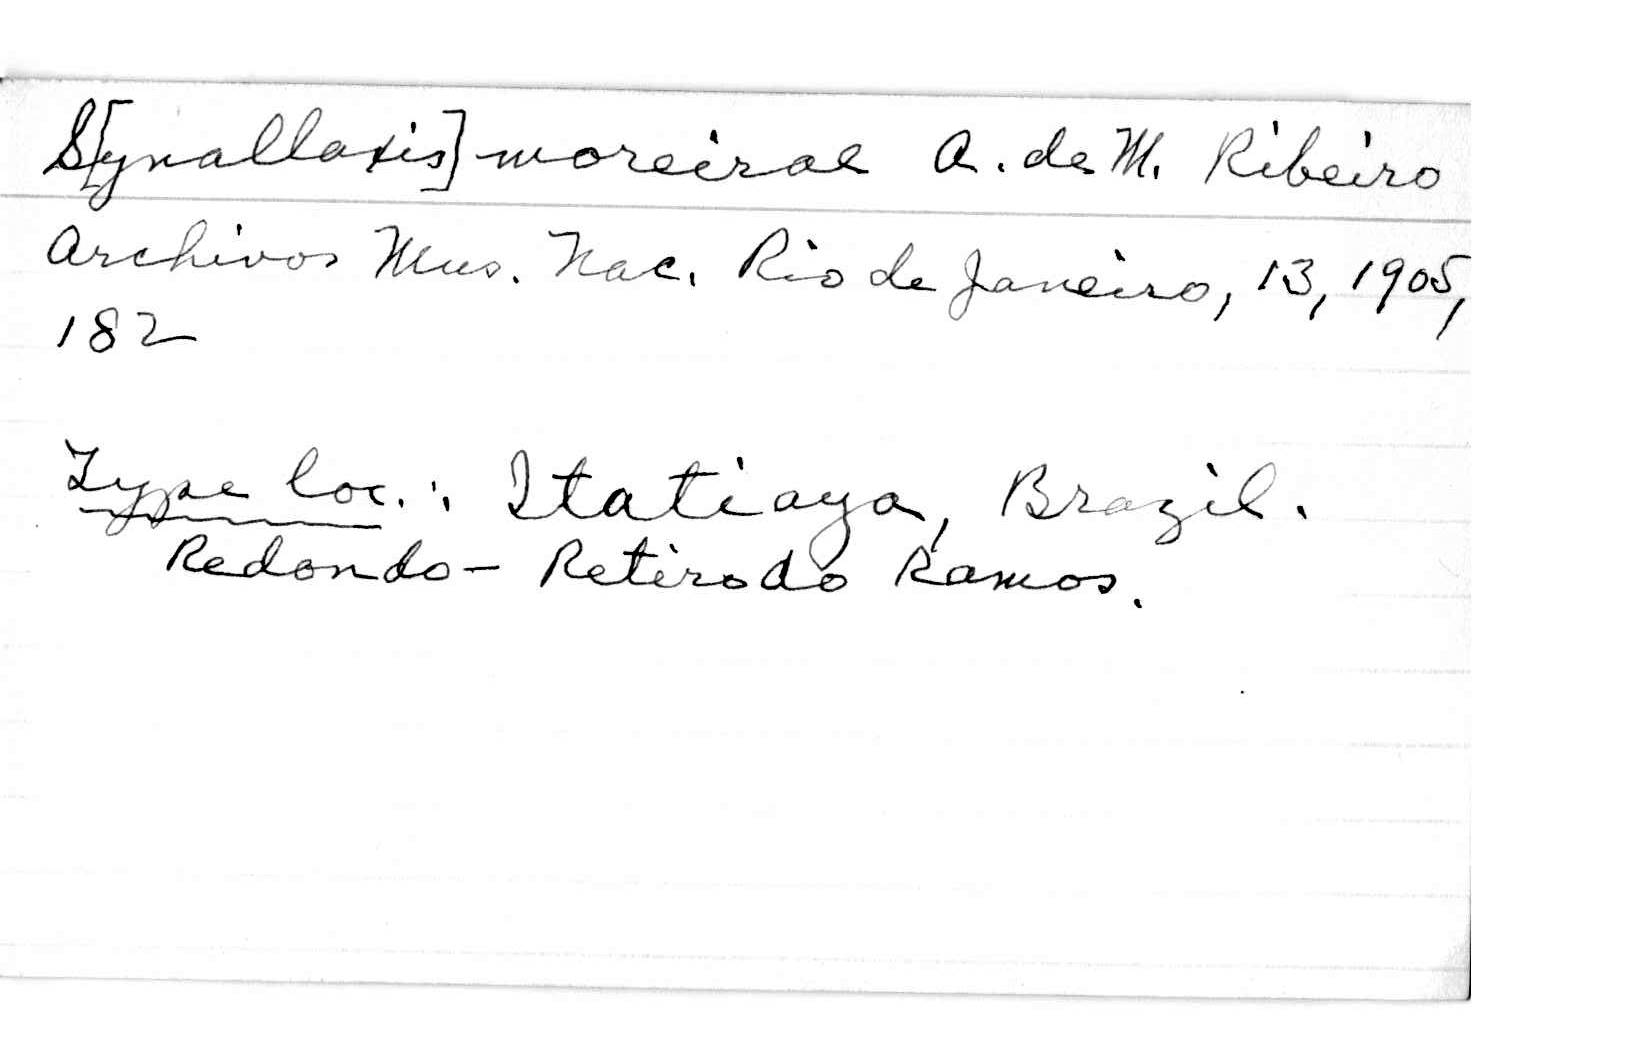 S[ynallaxis] moreirae A. de M. Ribeiro
Archivos Mus. Nac. Rio de Janeiro, 13, 1905,
182
Type loc.: Itatiaya, Brazil.
Redondo - Retiro do Ramos.